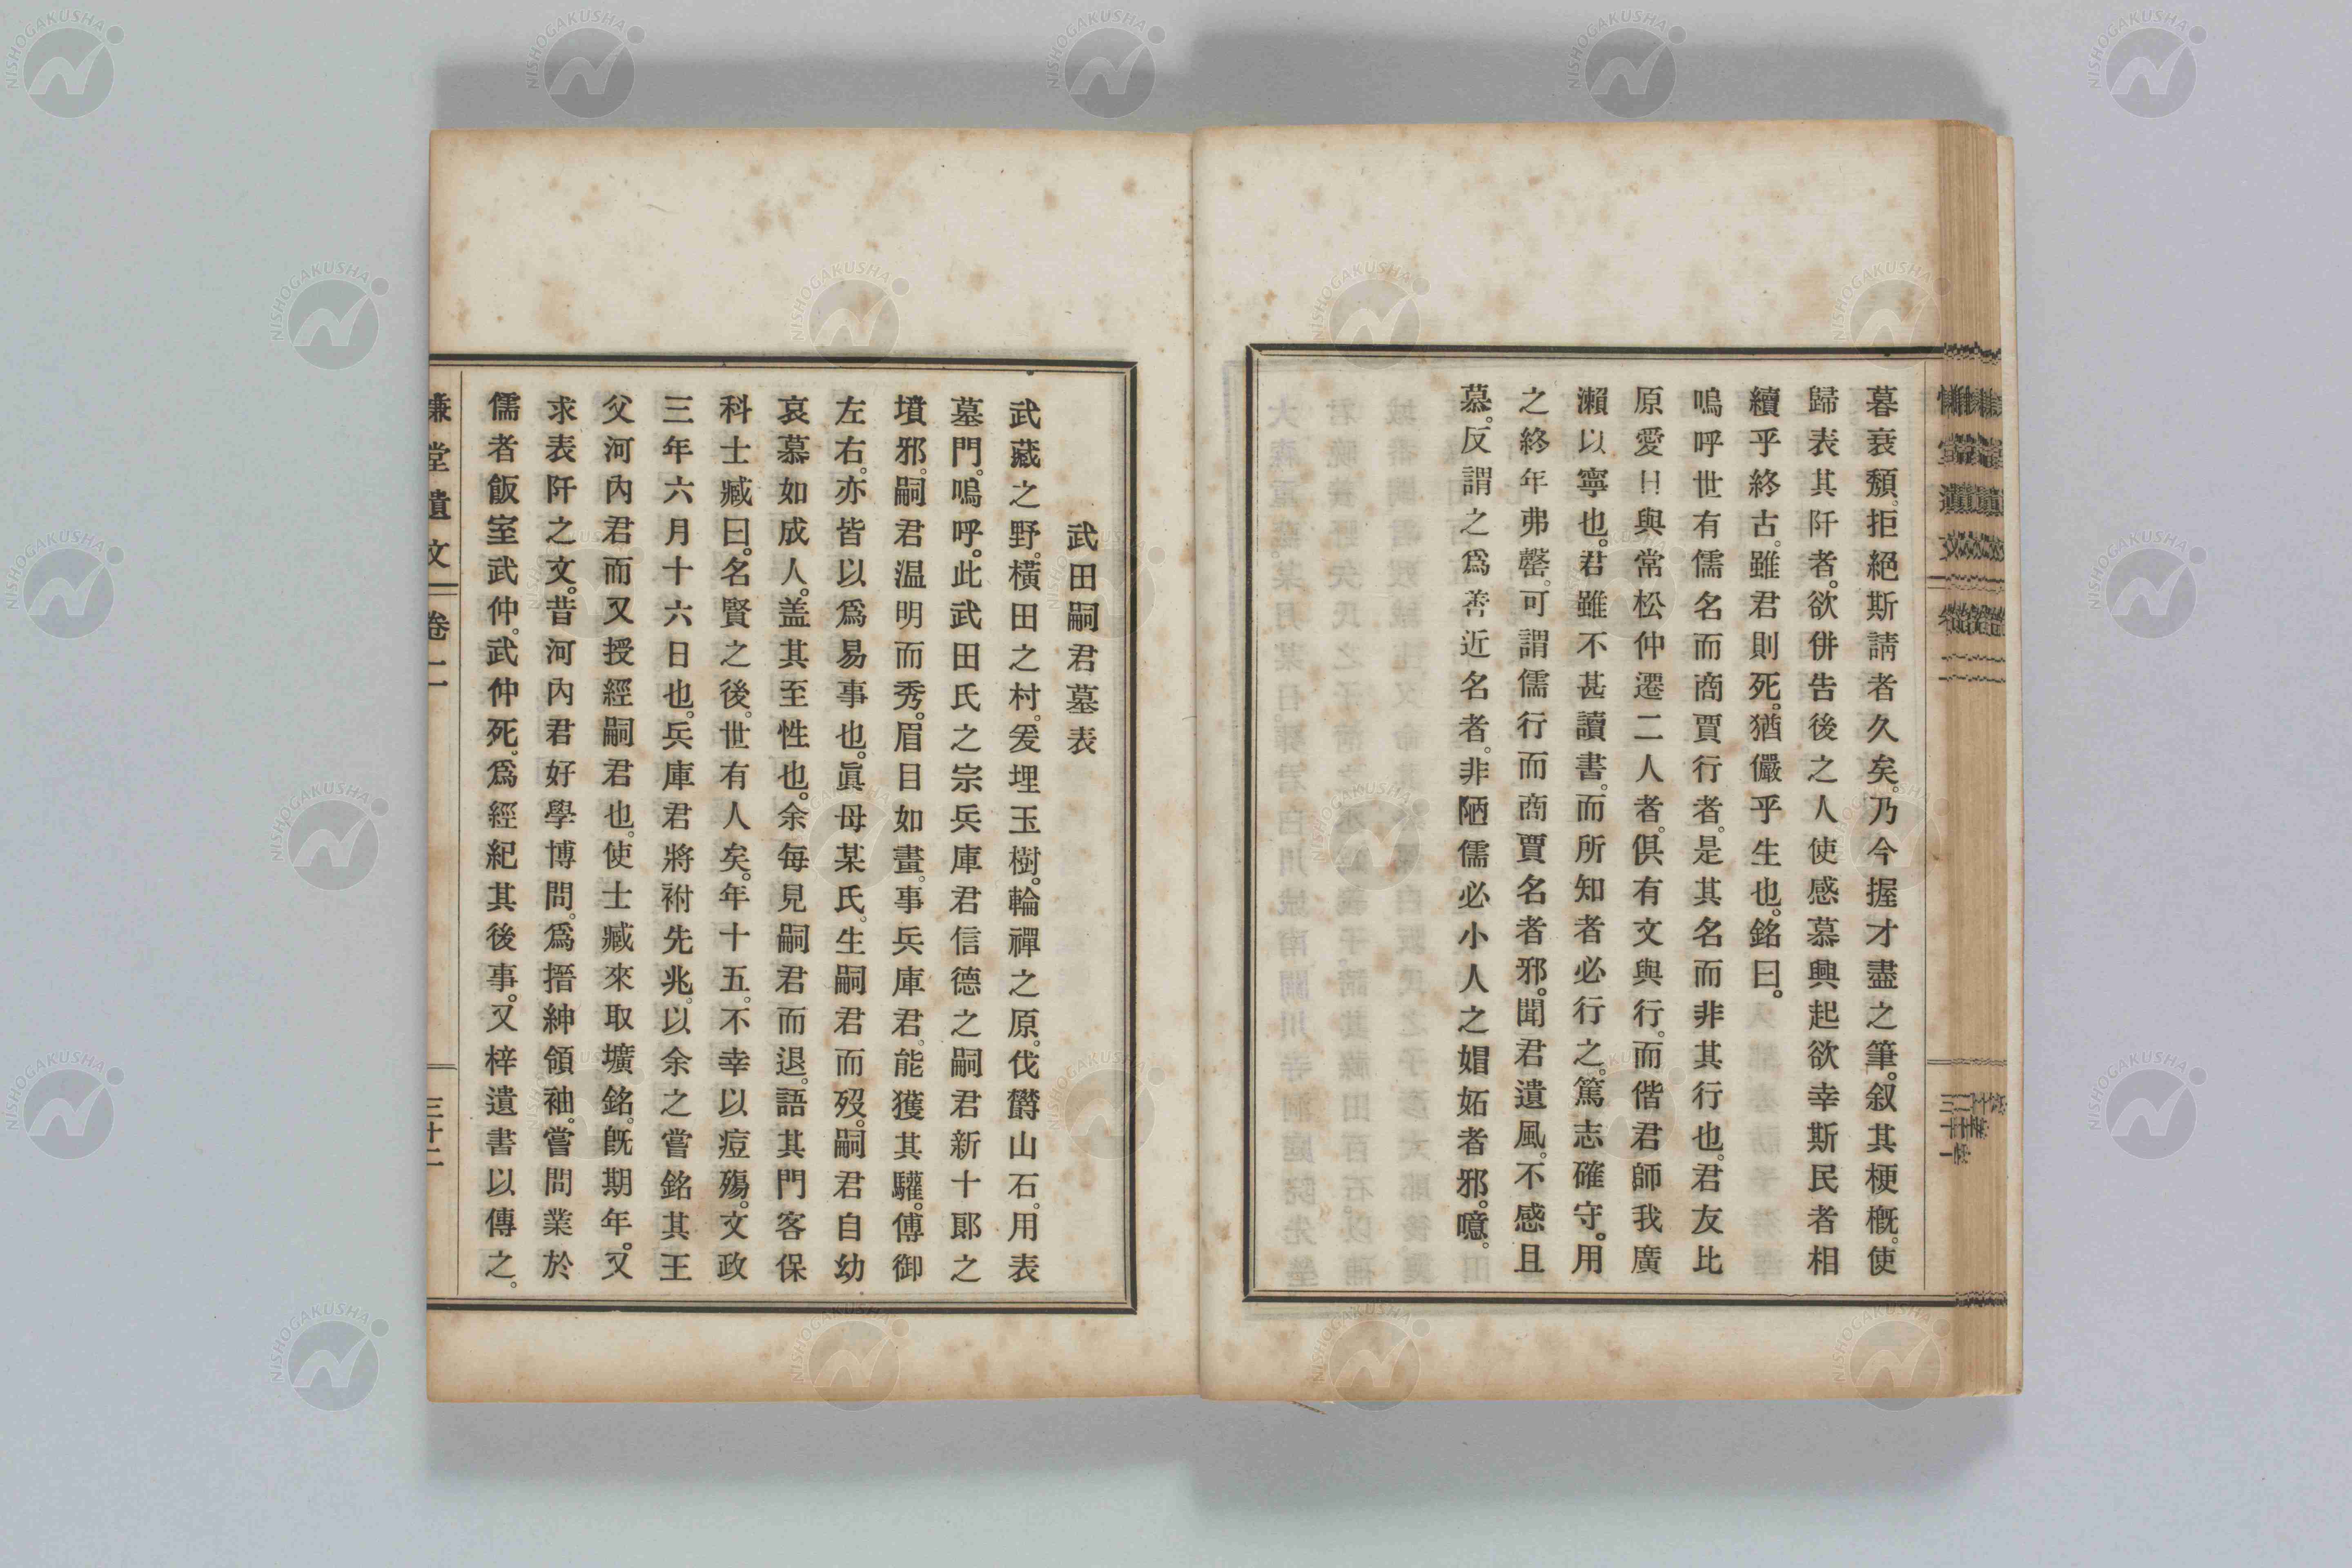 暮衰頽。拒絕斯請者久矣。乃今握才盡之筆。叙其梗槪。使
歸表其阡者。欲併告後之人使感慕興起欲幸斯民者相
續乎終古。雖君則死。猶儼乎生也。銘曰。
嗚呼世有儒名而商賈行者。是其名而非其行也。君友比
原愛日與常松仲遷二人者。俱有文與行。而偕君師我廣
瀨以寧也。君雖不甚讀書。而所知者必行之。篤志確守。用
之終年弗罄。可謂儒行而商賈名者邪。聞君遺風。不感且
慕。反謂之爲善近名者。非陋儒必小人之媢妬者邪。噫。
武田嗣君墓表
武藏之野。橫田之村。爰埋玉樹。輪禪之原。伐欝山石。用表
墓門。嗚呼。此武田氏之宗兵庫君信德之嗣君新十郞之
墳邪。嗣君温明而秀。眉目如畫。事兵庫君。能獲其驩。傅御
左右。亦皆以爲易事也。眞母某氏。生嗣君而歿。嗣君自幼
哀慕如成人。盖其至性也。余每見嗣君而退。語其門客保
科士臧曰。名賢之後。世有人矣。年十五。不幸以痘殤。文政
三年六月十六日也。兵庫君將祔先兆。以余之嘗銘其王
父河內君而又授經嗣君也。使士臧來取壙銘。旣期年。又
求表阡之文。昔河內君好學博問。爲搢紳領袖。嘗問業於
儒者飯室武仲。武仲死。爲經紀其後事。又梓遺書以傳之。
慊堂遺文 卷二 三十二
NISHOGAKUSHA
NISHOGAKUSHA
NISHOGAKUSHA
NISHOGAKUSHA
NISHOGAKUSHA